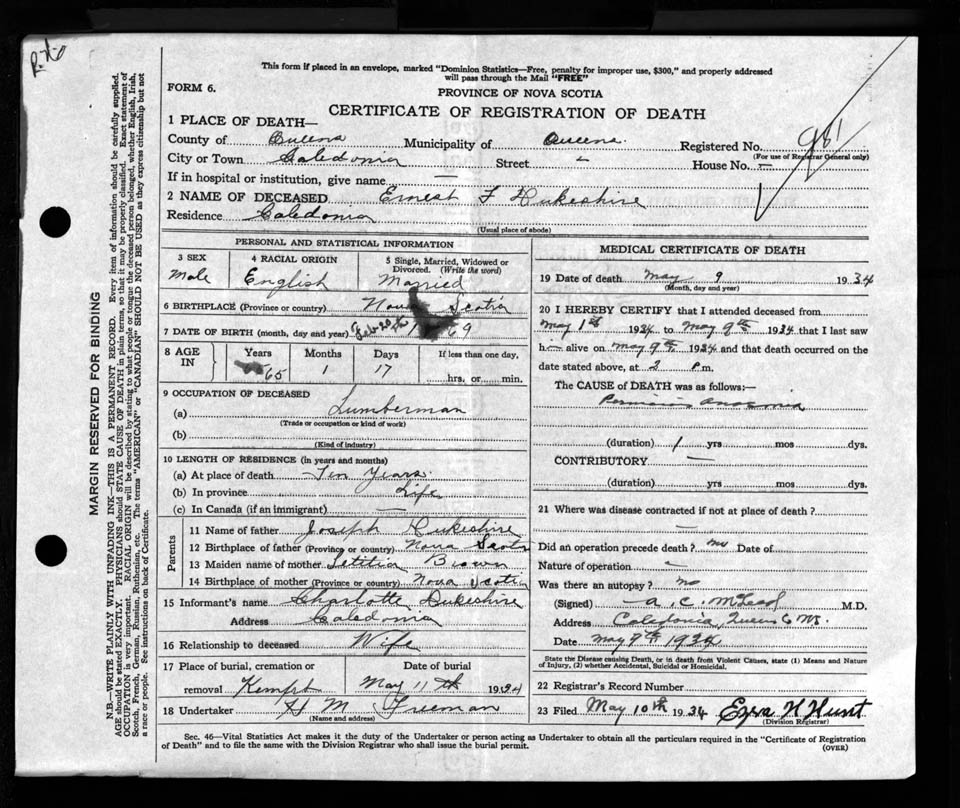 This form if placed in an envelope, marked "Dominion Statistics—Free, penalty for improper use, $300," and properly addressed
will pass through the Mail "FREE"
FORM 6.
PROVINCE OF NOVA SCOTIA
CERTIFICATE OF REGISTRATION OF DEATH
1 PLACE OF DEATH—
County of Queens Municipality of Queens. Registered No. 961
(For use of Registrar General only)
City or Town Caledonia Street " House No. —
If in hospital or institution, give name —
2 NAME OF DECEASED Ernest F Dukeshire
Residence Caledonia
(Usual place of abode)
PERSONAL AND STATISTICAL INFORMATION
3 SEX 4 RACIAL ORIGIN 5 Single, Married, Widowed or Divorced. (Write the word)
Male English Married
6 BIRTHPLACE (Province or country) Nova Scotia
7 DATE OF BIRTH (month, day and year) Feb 69
8 AGE IN Years Months Days If less than one day,
65 1 17 hrs. or min.
9 OCCUPATION OF DECEASED
(a) Lumberman
(Trade or occupation or kind of work)
(b)
(Kind of industry)
10 LENGTH OF RESIDENCE (in years and months)
(a) At place of death Ten Years.
(b) In province Life
(c) In Canada (if an immigrant) —
Parents
11 Name of father Joseph Dukeshire
12 Birthplace of father (Province or country) Nova Scotia
13 Maiden name of mother Letitia Brown
14 Birthplace of mother (Province or country) Nova Scotia
15 Informant's name Charlotte Dukeshire
Address Caledonia
16 Relationship to deceased Wife
17 Place of burial, cremation or removal Kempt Date of burial May 11th 1934
18 Undertaker H M Freeman
(Name and address)
MEDICAL CERTIFICATE OF DEATH
19 Date of death May 9 1934
(Month, day and year)
20 I HEREBY CERTIFY that I attended deceased from
May 1st 1934 to May 9th 1934 that I last saw
h— alive on May 9th 1934 and that death occurred on the
date stated above, at 2 P.m.
The CAUSE of DEATH was as follows:—
Pernicious Anaemia
(duration) 1 yrs mos dys.
CONTRIBUTORY —
(duration) yrs mos dys.
21 Where was disease contracted if not at place of death?
—
Did an operation precede death? no Date of
Nature of operation —
Was there an autopsy? no
(Signed) A. C. McLeod M.D.
Address Caledonia, Queens Co NS.
Date May 9th 1934
State the Disease causing Death, or in death from Violent Causes, state (1) Means and Nature
of Injury, (2) whether Accidental, Suicidal or Homicidal.
22 Registrar's Record Number
23 Filed May 10th 1934 Ezra H Hunt
(Division Registrar)
Sec. 46—Vital Statistics Act makes it the duty of the Undertaker or person acting as Undertaker to obtain all the particulars required in the "Certificate of Registration
of Death" and to file the same with the Division Registrar who shall issue the burial permit. (OVER)
MARGIN RESERVED FOR BINDING
N.B.—WRITE PLAINLY WITH UNFADING INK—THIS IS A PERMANENT RECORD. Every item of information should be carefully supplied.
AGE should be stated EXACTLY. PHYSICIANS should STATE CAUSE OF DEATH in plain terms, so that it may be properly classified. Exact statement of
OCCUPATION is very important. RACIAL ORIGIN will be described by stating to what people or tongue the deceased person belonged, whether English, Irish,
Scotch, French, German, Russian, Ruthenian, etc. The terms "AMERICAN" or "CANADIAN" SHOULD NOT BE USED as they express citizenship but not
a race or people. See instructions on back of Certificate.